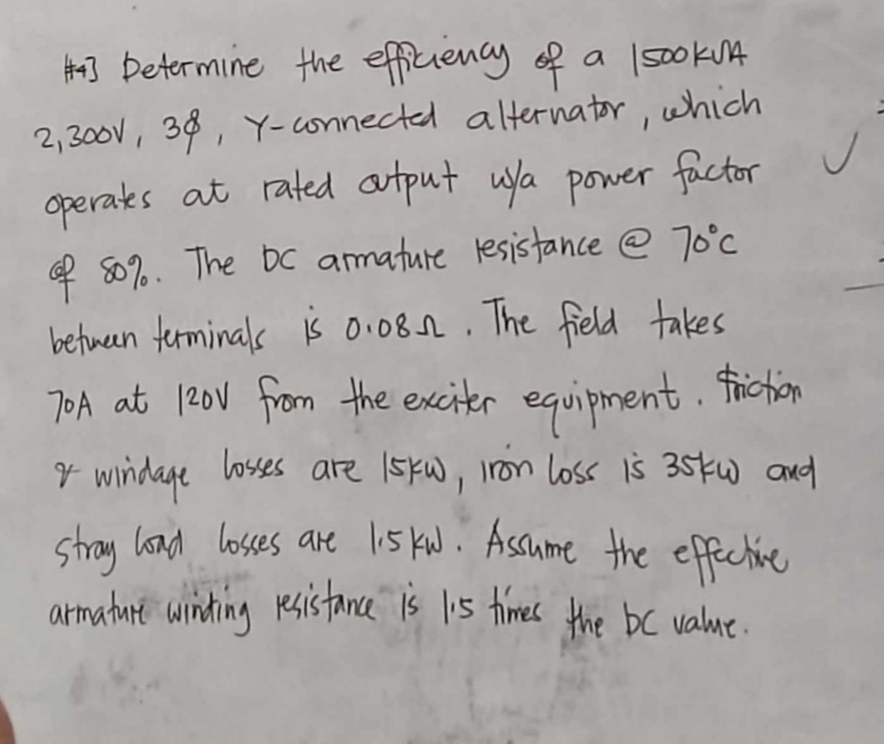 #4] Determine the efficiency of a 1500kVA
2,300V, 3φ, Y-connected alternator, which
operates at rated output w/a power factor
of 80%. The DC armature resistance @ 70°C
between terminals is 0.08Ω. The field takes
70A at 120V from the exciter equipment. Friction
& windage losses are 15kW, iron loss is 35kW and
stray load losses are 1.5kW. Assume the effective
armature winding resistance is 1.5 times the DC value.